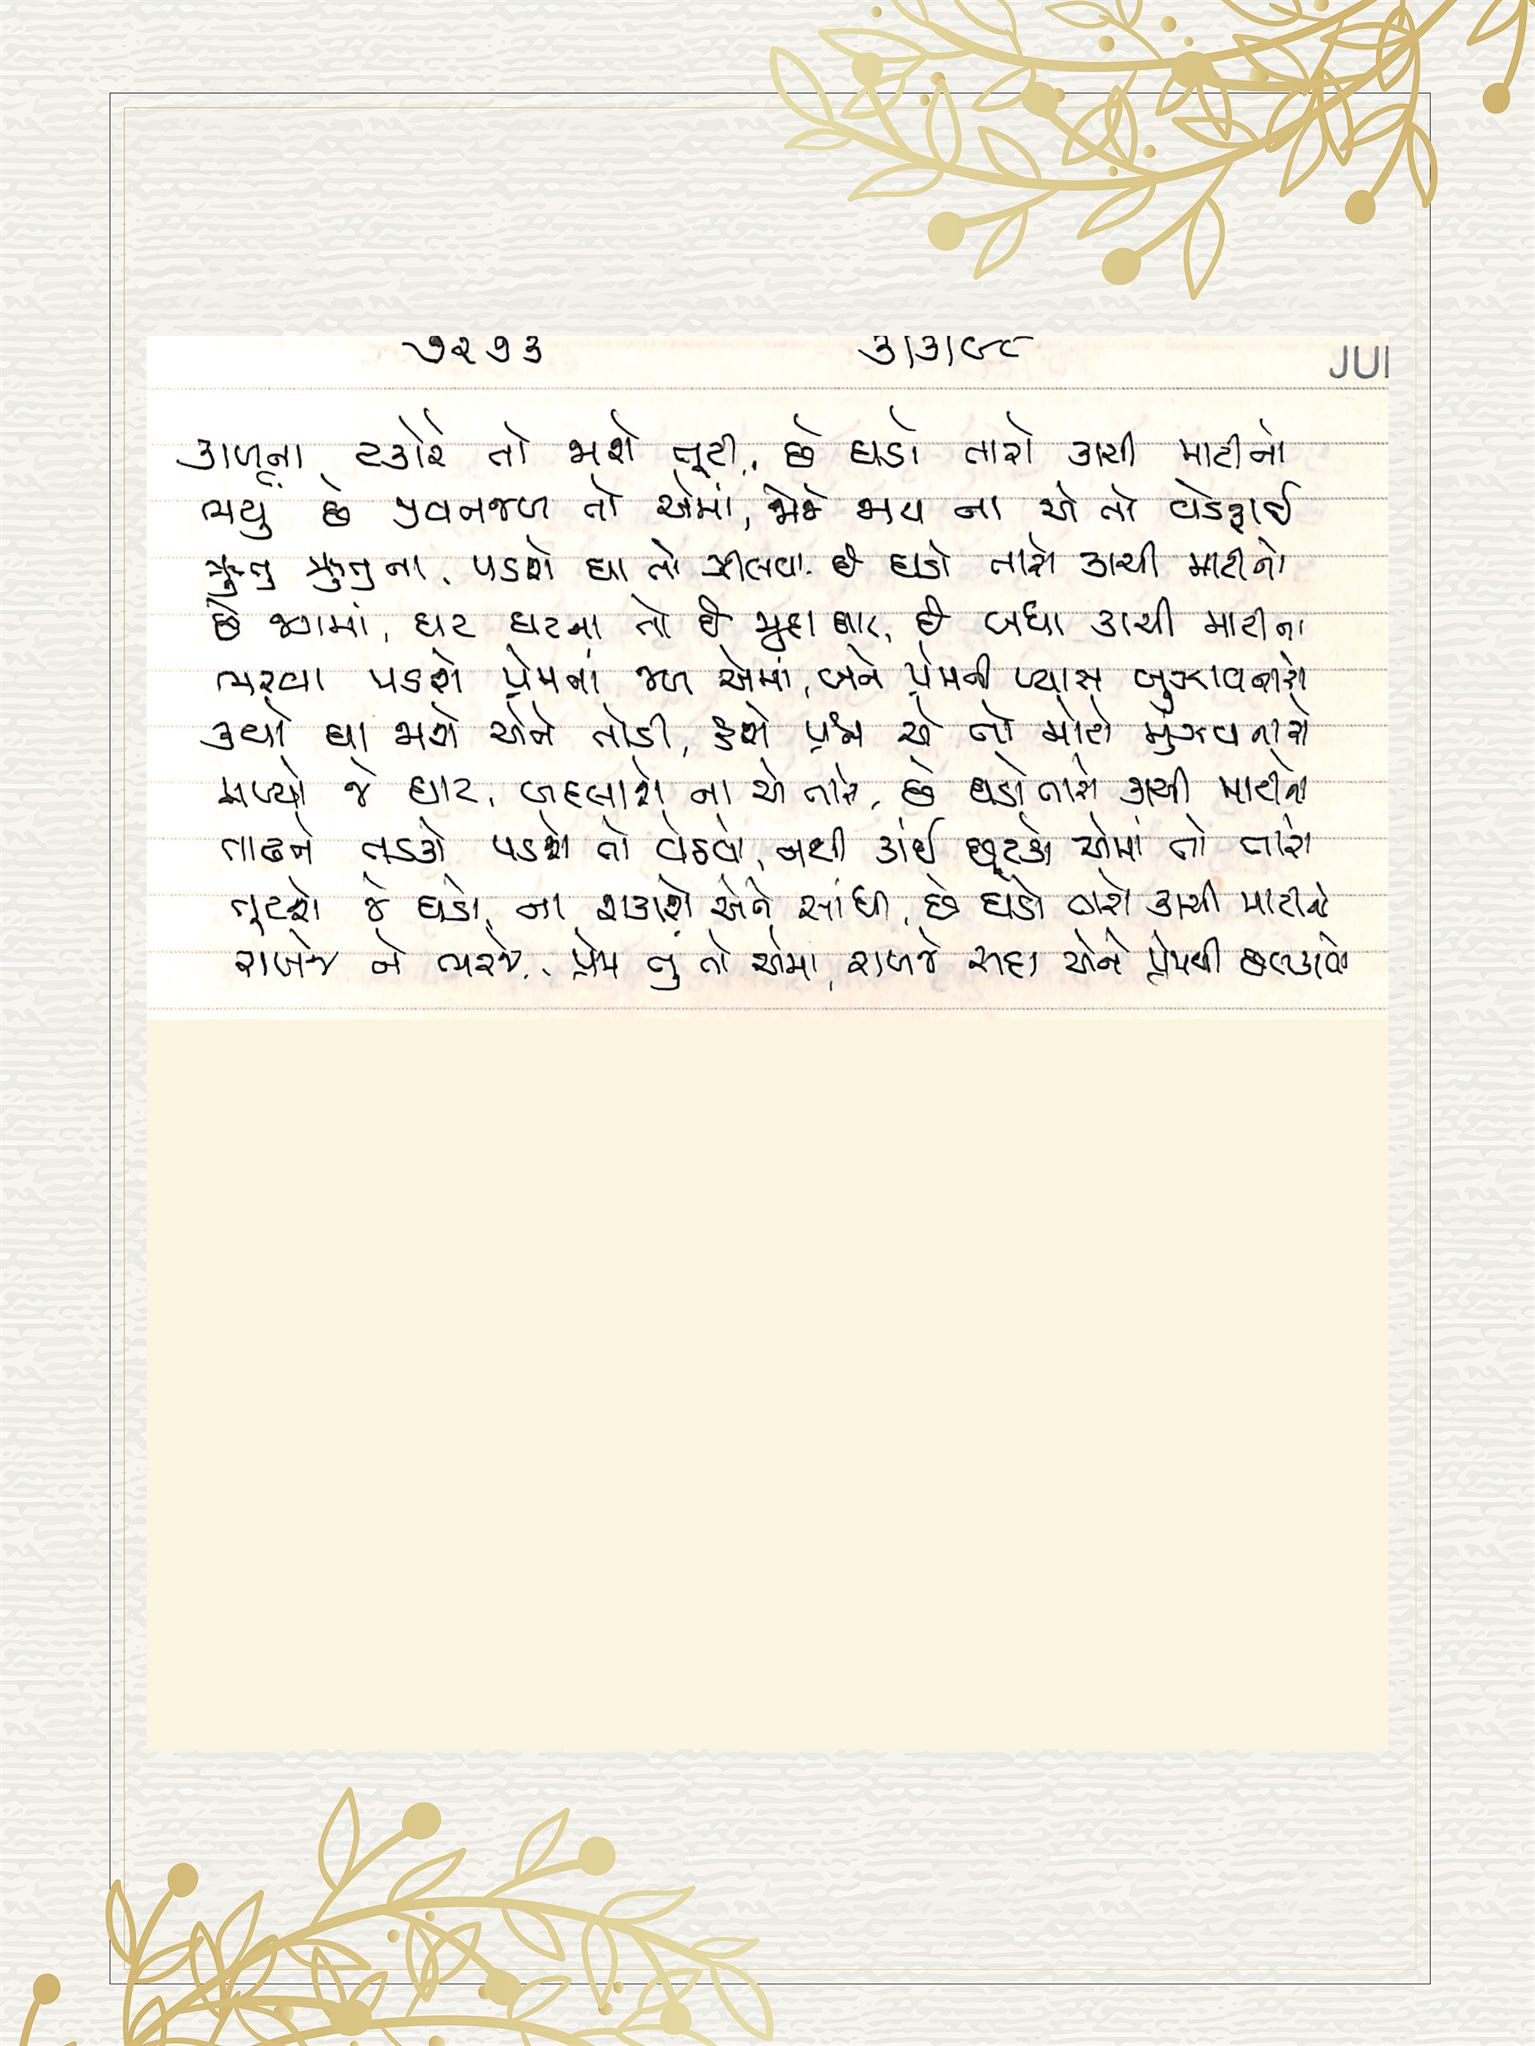 ૭૨૭૩ ૩/૩/૯૮ JUI
કાળના ટકોરે તો જાશે તૂટી, છે ઘડો તારો કાચી માટીનો
ભર્યું છે જીવનજળ તો એમાં, જોજે જાય ના એ તો વેડફાઈ
ઋતુ ઋતુના, પડશે ઘા તો ઝીલવા, છે ઘડો તારો કાચી માટીનો
છે જગમાં, ઘટ ઘટના તો છે જુદા ઘાટ, છે બધા કાચી માટીના
ભરવા પડશે પ્રેમનાં જળ એમાં, બને પ્રેમની પ્યાસ બુઝાવનારો
કયો ઘા જાશે એને તોડી, હશે પ્રશ્ન એ તો મોટો મુંઝવનારો
મળ્યો જે ઘાટ, બદલાશે ના એ તારે, છે ઘડો તારો કાચી માટીનો
તાઢને તડકો પડશે તો વેઠવો, નથી કાંઈ છૂટકો એમાં તો તારો
તૂટશે જે ઘડો, ના શકાશે એને સાંધી, છે ઘડો તારો કાચી માટીનો
રાખજે ને ભરજે, પ્રેમ નું તો એમાં, રાખજે સદા એને પ્રેમથી છલકાવી